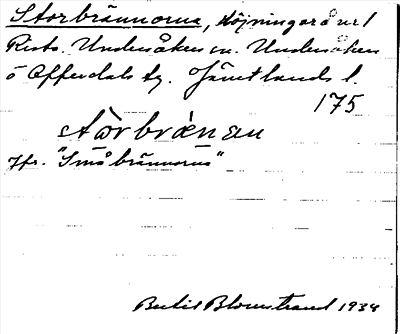 Storbrännorna, Höjningar å nr 1
Risto. Undersåkers sn. Undersåkers
o Offerdals tg. Jämtlands l.
175
stòrbrǽnan
Jfr. "Småbrännorna"
Bertil Blomstrand 1934